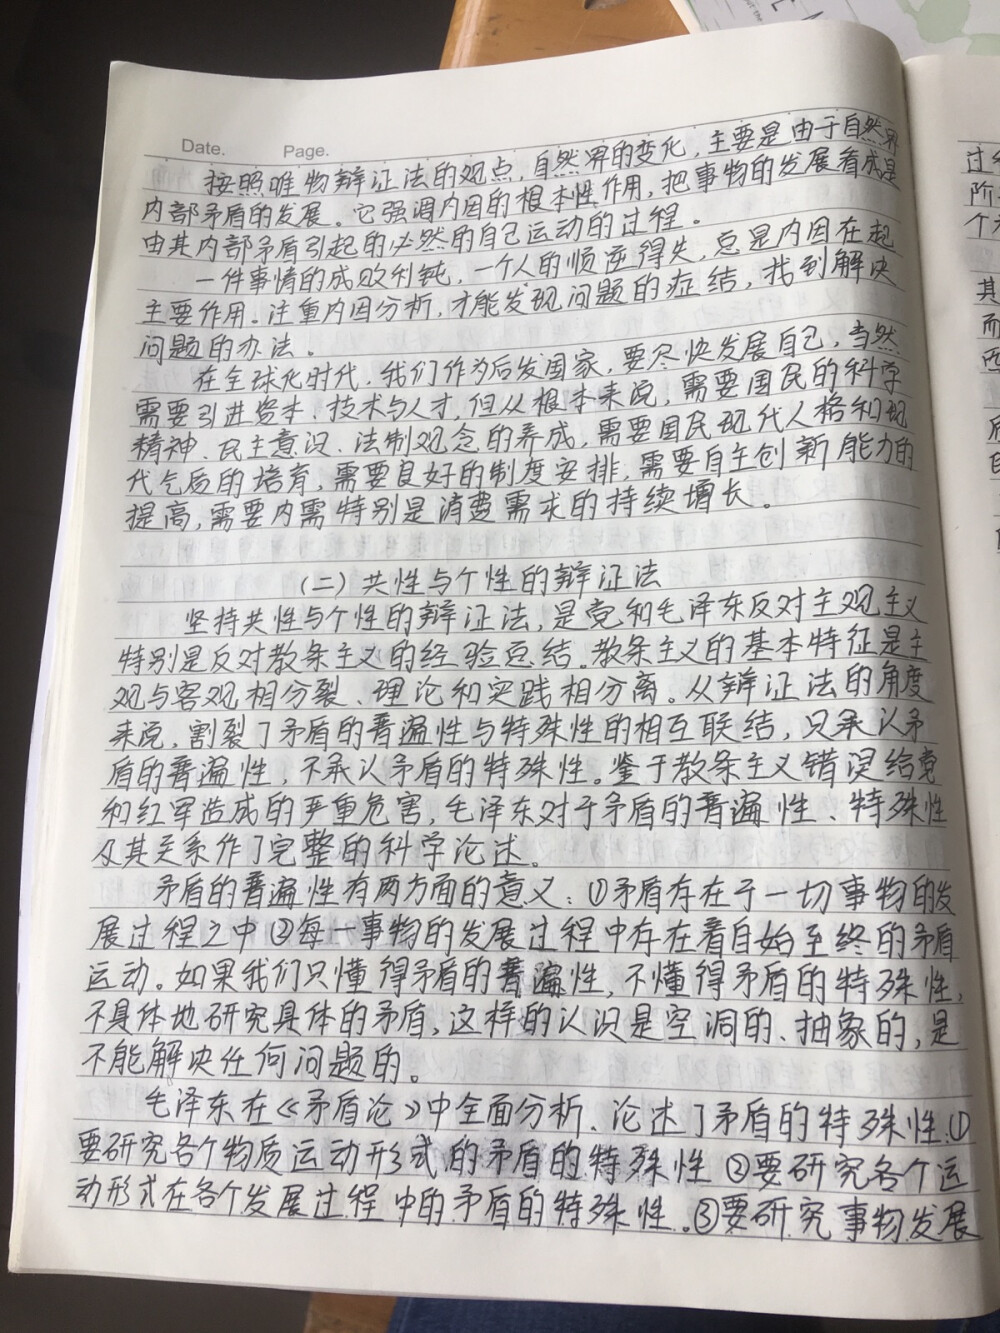 Date. Page.
按照唯物辩证法的观点，自然界的变化，主要是由于自然界
内部矛盾的发展。它强调内因的根本性作用，把事物的发展看成是
由其内部矛盾引起的必然的自己运动的过程。
一件事情的成败利钝，一个人的顺逆得失，总是内因在起
主要作用。注重内因分析，才能发现问题的症结，找到解决
问题的办法。
在全球化时代，我们作为后发国家，要尽快发展自己，当然
需要引进资本、技术与人才，但从根本来说，需要国民的科学
精神、民主意识、法制观念的养成，需要国民现代人格和现
代气质的培育，需要良好的制度安排，需要自主创新能力的
提高，需要内需特别是消费需求的持续增长。
（二）共性与个性的辩证法
坚持共性与个性的辩证法，是党和毛泽东反对主观主义
特别是反对教条主义的经验总结。教条主义的基本特征是主
观与客观相分裂、理论和实践相分离。从辩证法的角度
来说，割裂了矛盾的普遍性与特殊性的相互联结，只承认矛
盾的普遍性，不承认矛盾的特殊性。鉴于教条主义错误给党
和红军造成的严重危害，毛泽东对于矛盾的普遍性、特殊性
及其关系作了完整的科学论述。
矛盾的普遍性有两方面的意义：①矛盾存在于一切事物的发
展过程之中②每一事物的发展过程中存在着自始至终的矛盾
运动。如果我们只懂得矛盾的普遍性，不懂得矛盾的特殊性，
不具体地研究具体的矛盾，这样的认识是空洞的、抽象的，是
不能解决任何问题的。
毛泽东在《矛盾论》中全面分析、论述了矛盾的特殊性.①
要研究各个物质运动形式的矛盾的特殊性 ②要研究各个运
动形式在各个发展过程中的矛盾的特殊性.③要研究事物发展
阶
个
其
而
西